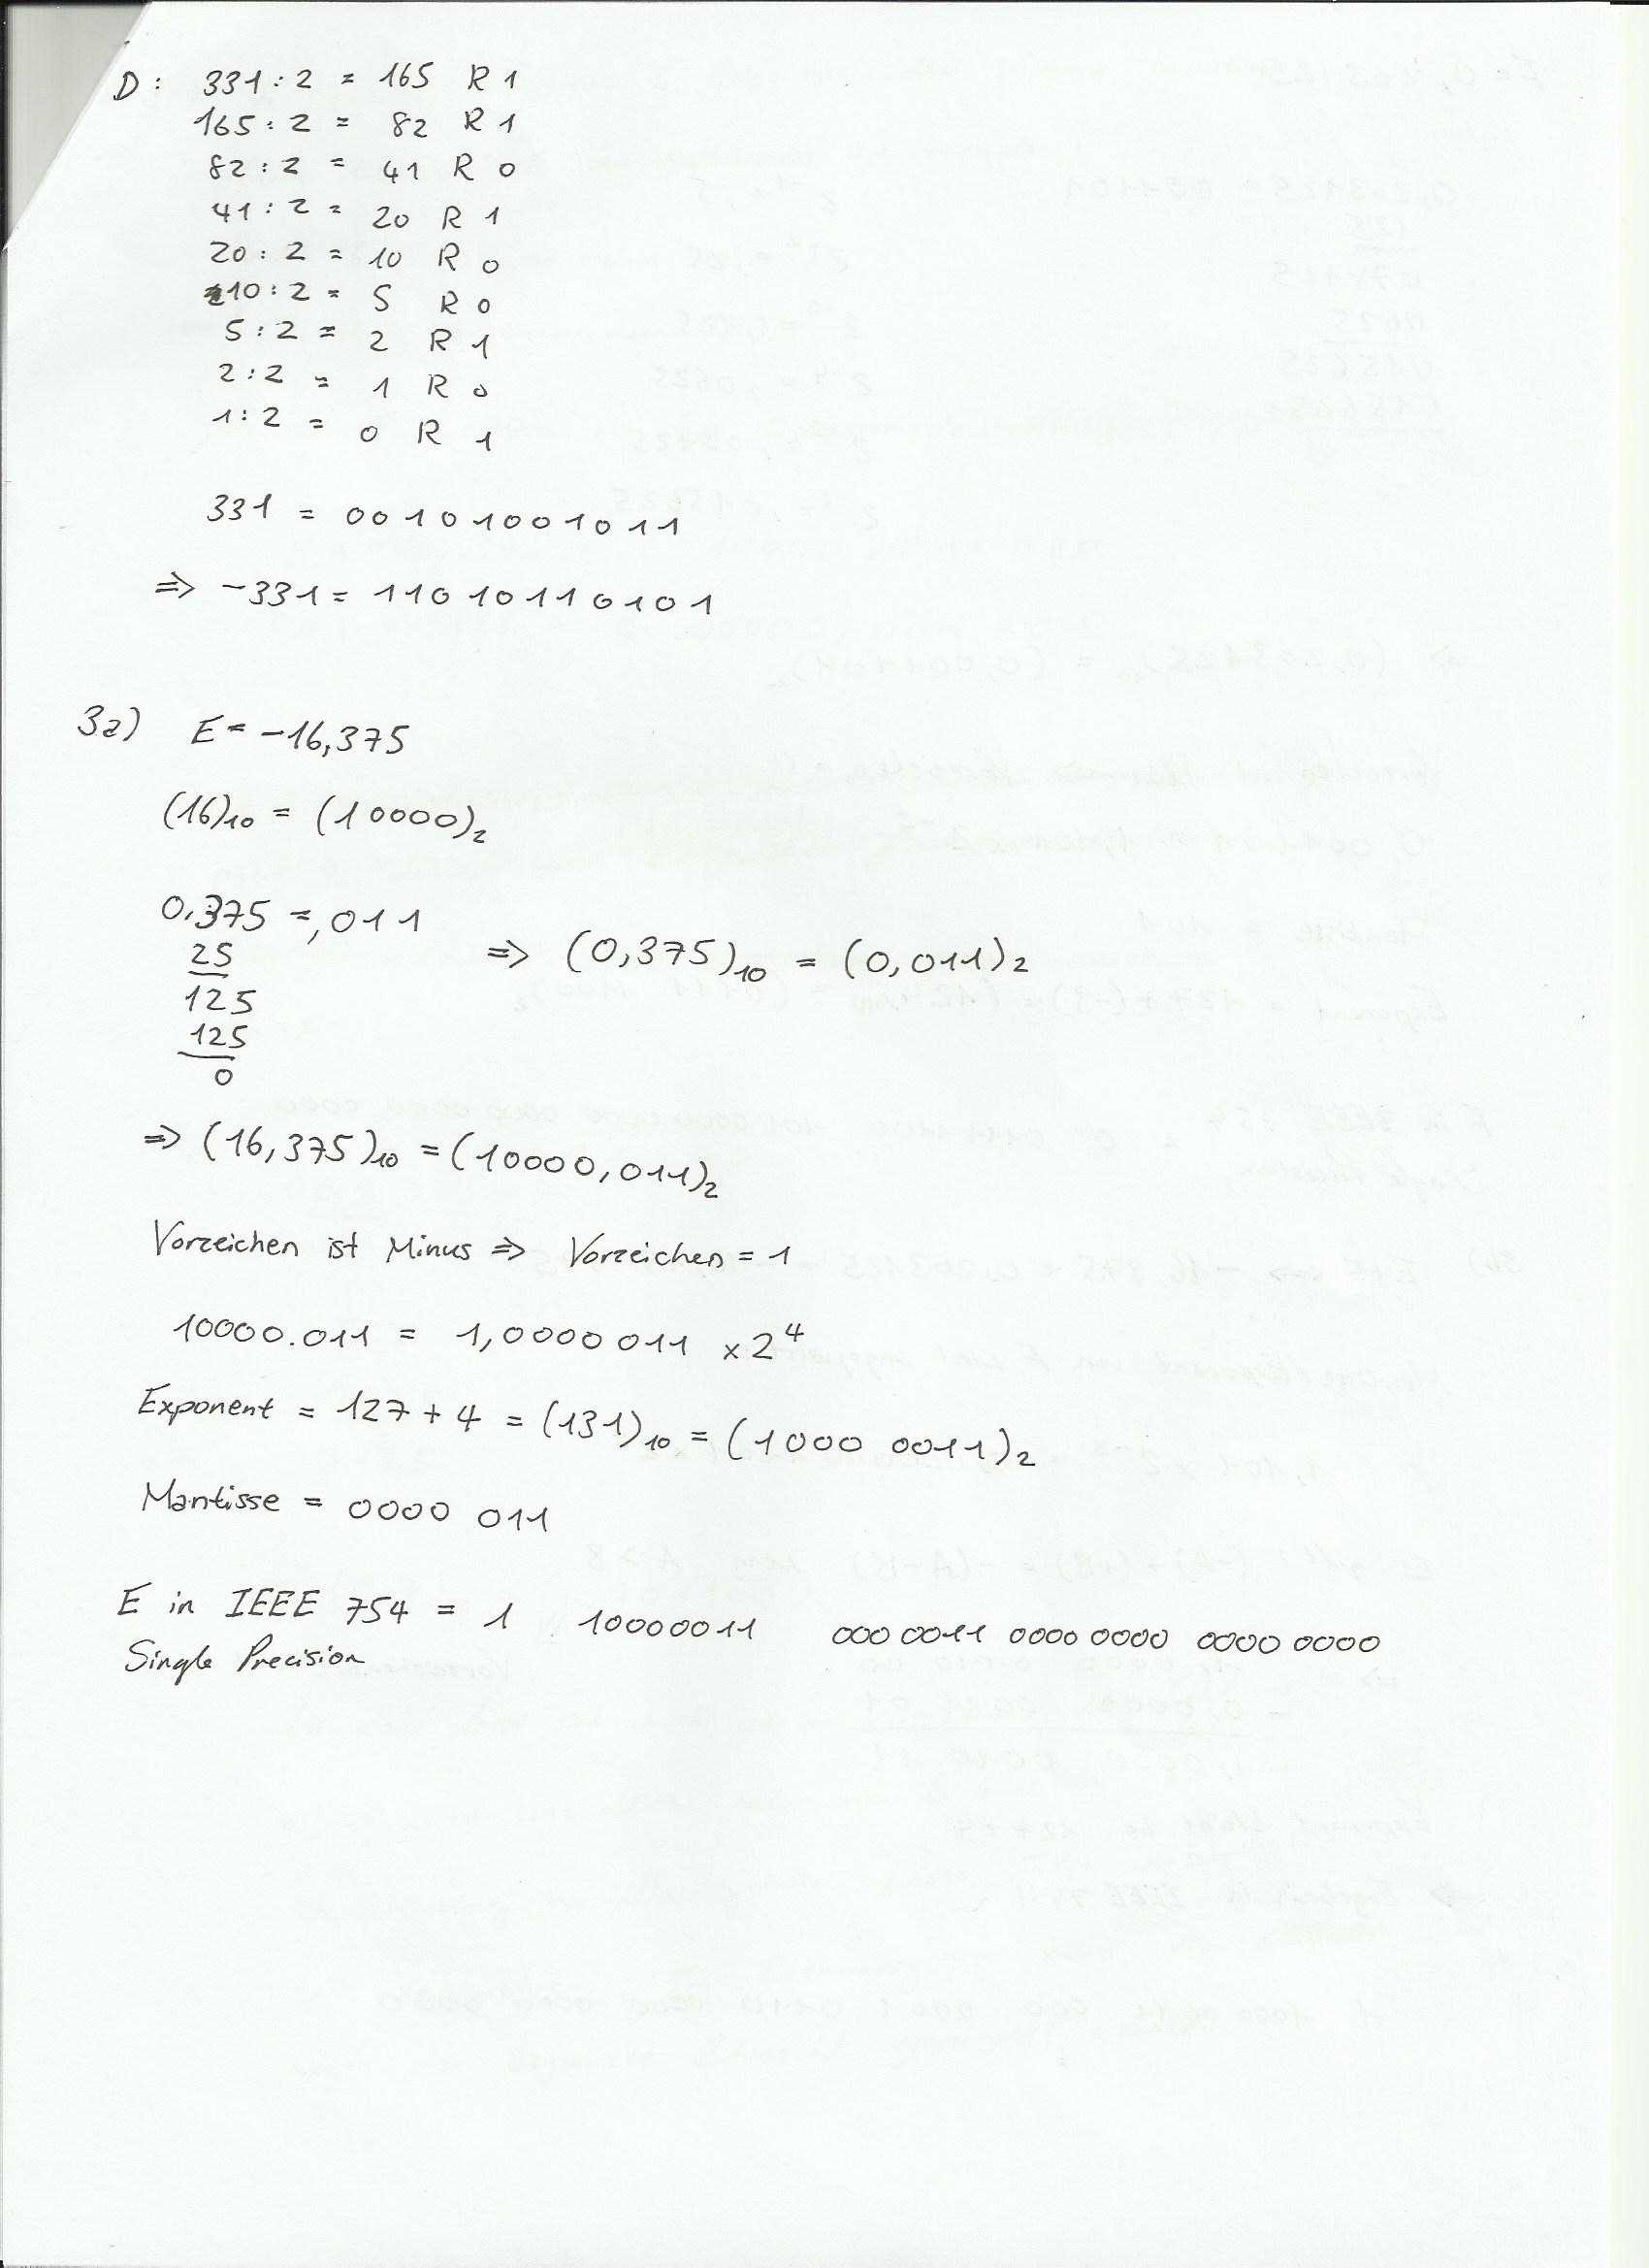 D: 331 : 2 = 165 R 1
165 : 2 = 82 R 1
82 : 2 = 41 R 0
41 : 2 = 20 R 1
20 : 2 = 10 R 0
10 : 2 = 5 R 0
5 : 2 = 2 R 1
2 : 2 = 1 R 0
1 : 2 = 0 R 1
331 = 001 01001011
=> -331 = 110 10110101
3a) E = -16,375
(16)10 = (10000)2
0,375 = ,011
25
125
125
0
=> (0,375)10 = (0,011)2
=> (16,375)10 = (10000,011)2
Vorzeichen ist Minus => Vorzeichen = 1
10000.011 = 1,0000 011 x 2^4
Exponent = 127 + 4 = (131)10 = (1000 0011)2
Mantisse = 0000 011
E in IEEE 754 = 1 10000011 000 0011 0000 0000 0000 0000
Single Precision